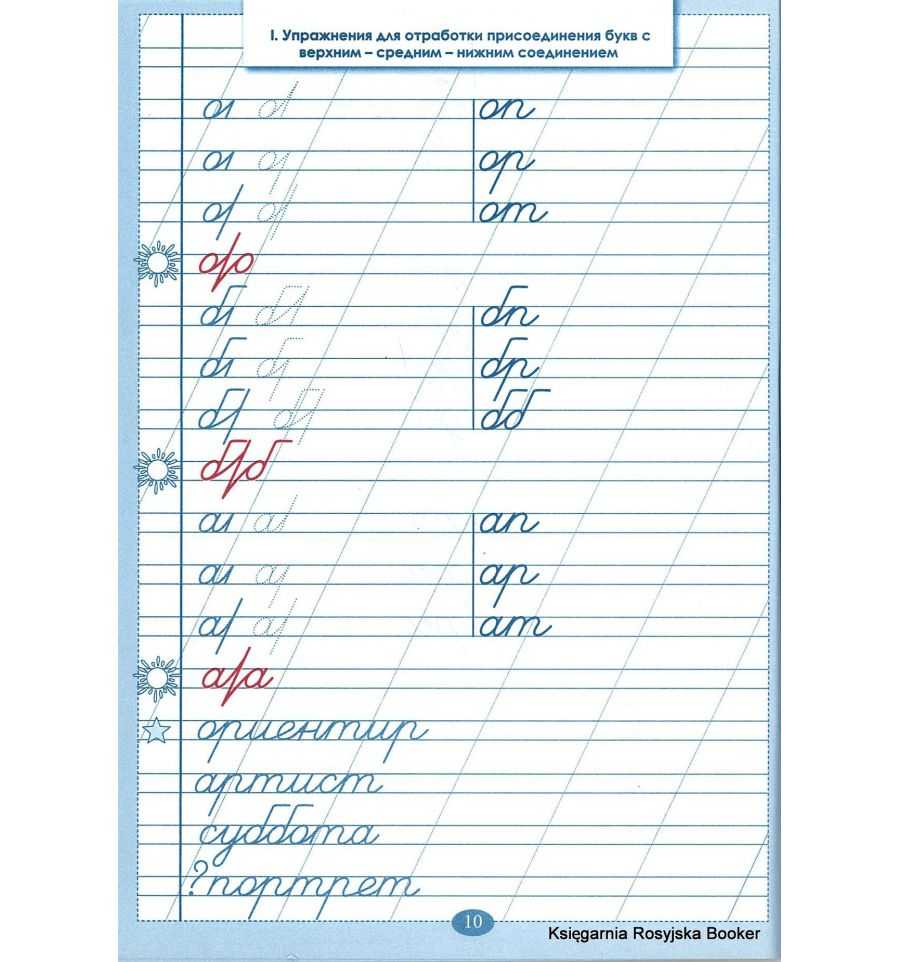 I. Упражнения для отработки присоединения букв с
верхним – средним – нижним соединением
оп
ор
от
бп
бр
бб
ап
ар
ат
ориентир
артист
суббота
?портрет
10
Księgarnia Rosyjska Booker